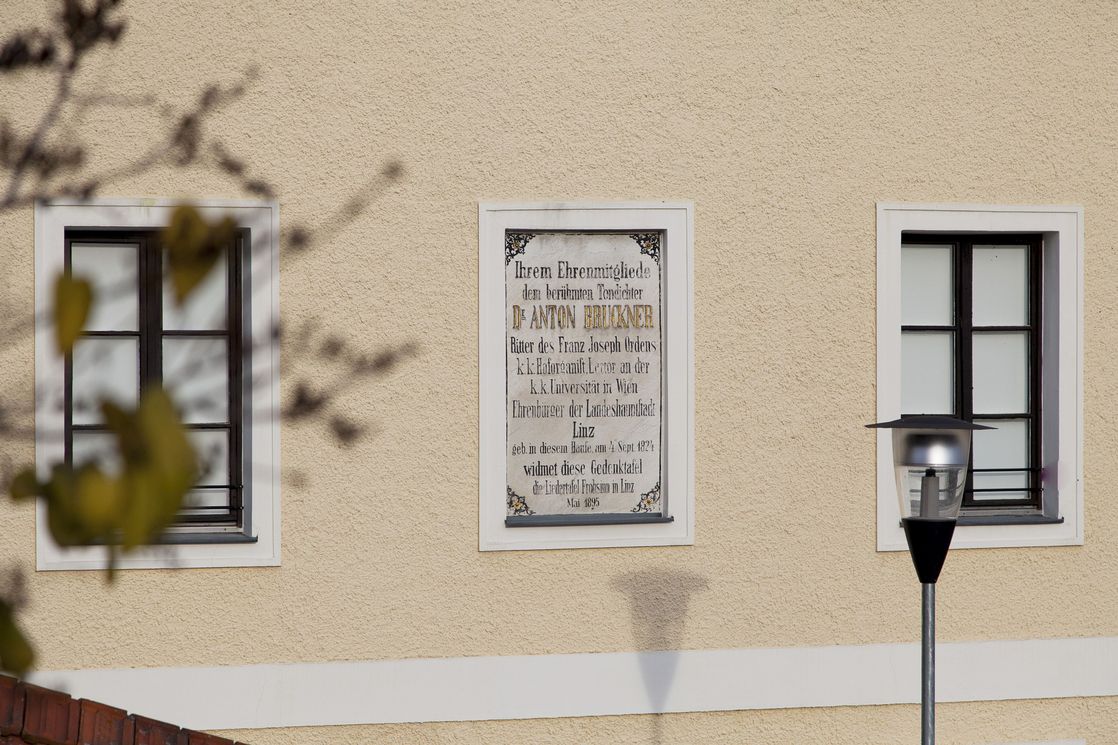 Ihrem Ehrenmitgliede
dem berühmten Tondichter
Dr. ANTON BRUCKNER
Ritter des Franz Joseph Ordens
k.k. Hoforganist, Lector an der
k.k. Universität in Wien
Ehrenbürger der Landeshauptstadt
Linz
geb. in diesem Hause, am 4. Sept. 1824
widmet diese Gedenktafel
die Liedertafel Frohsinn in Linz
Mai 1895